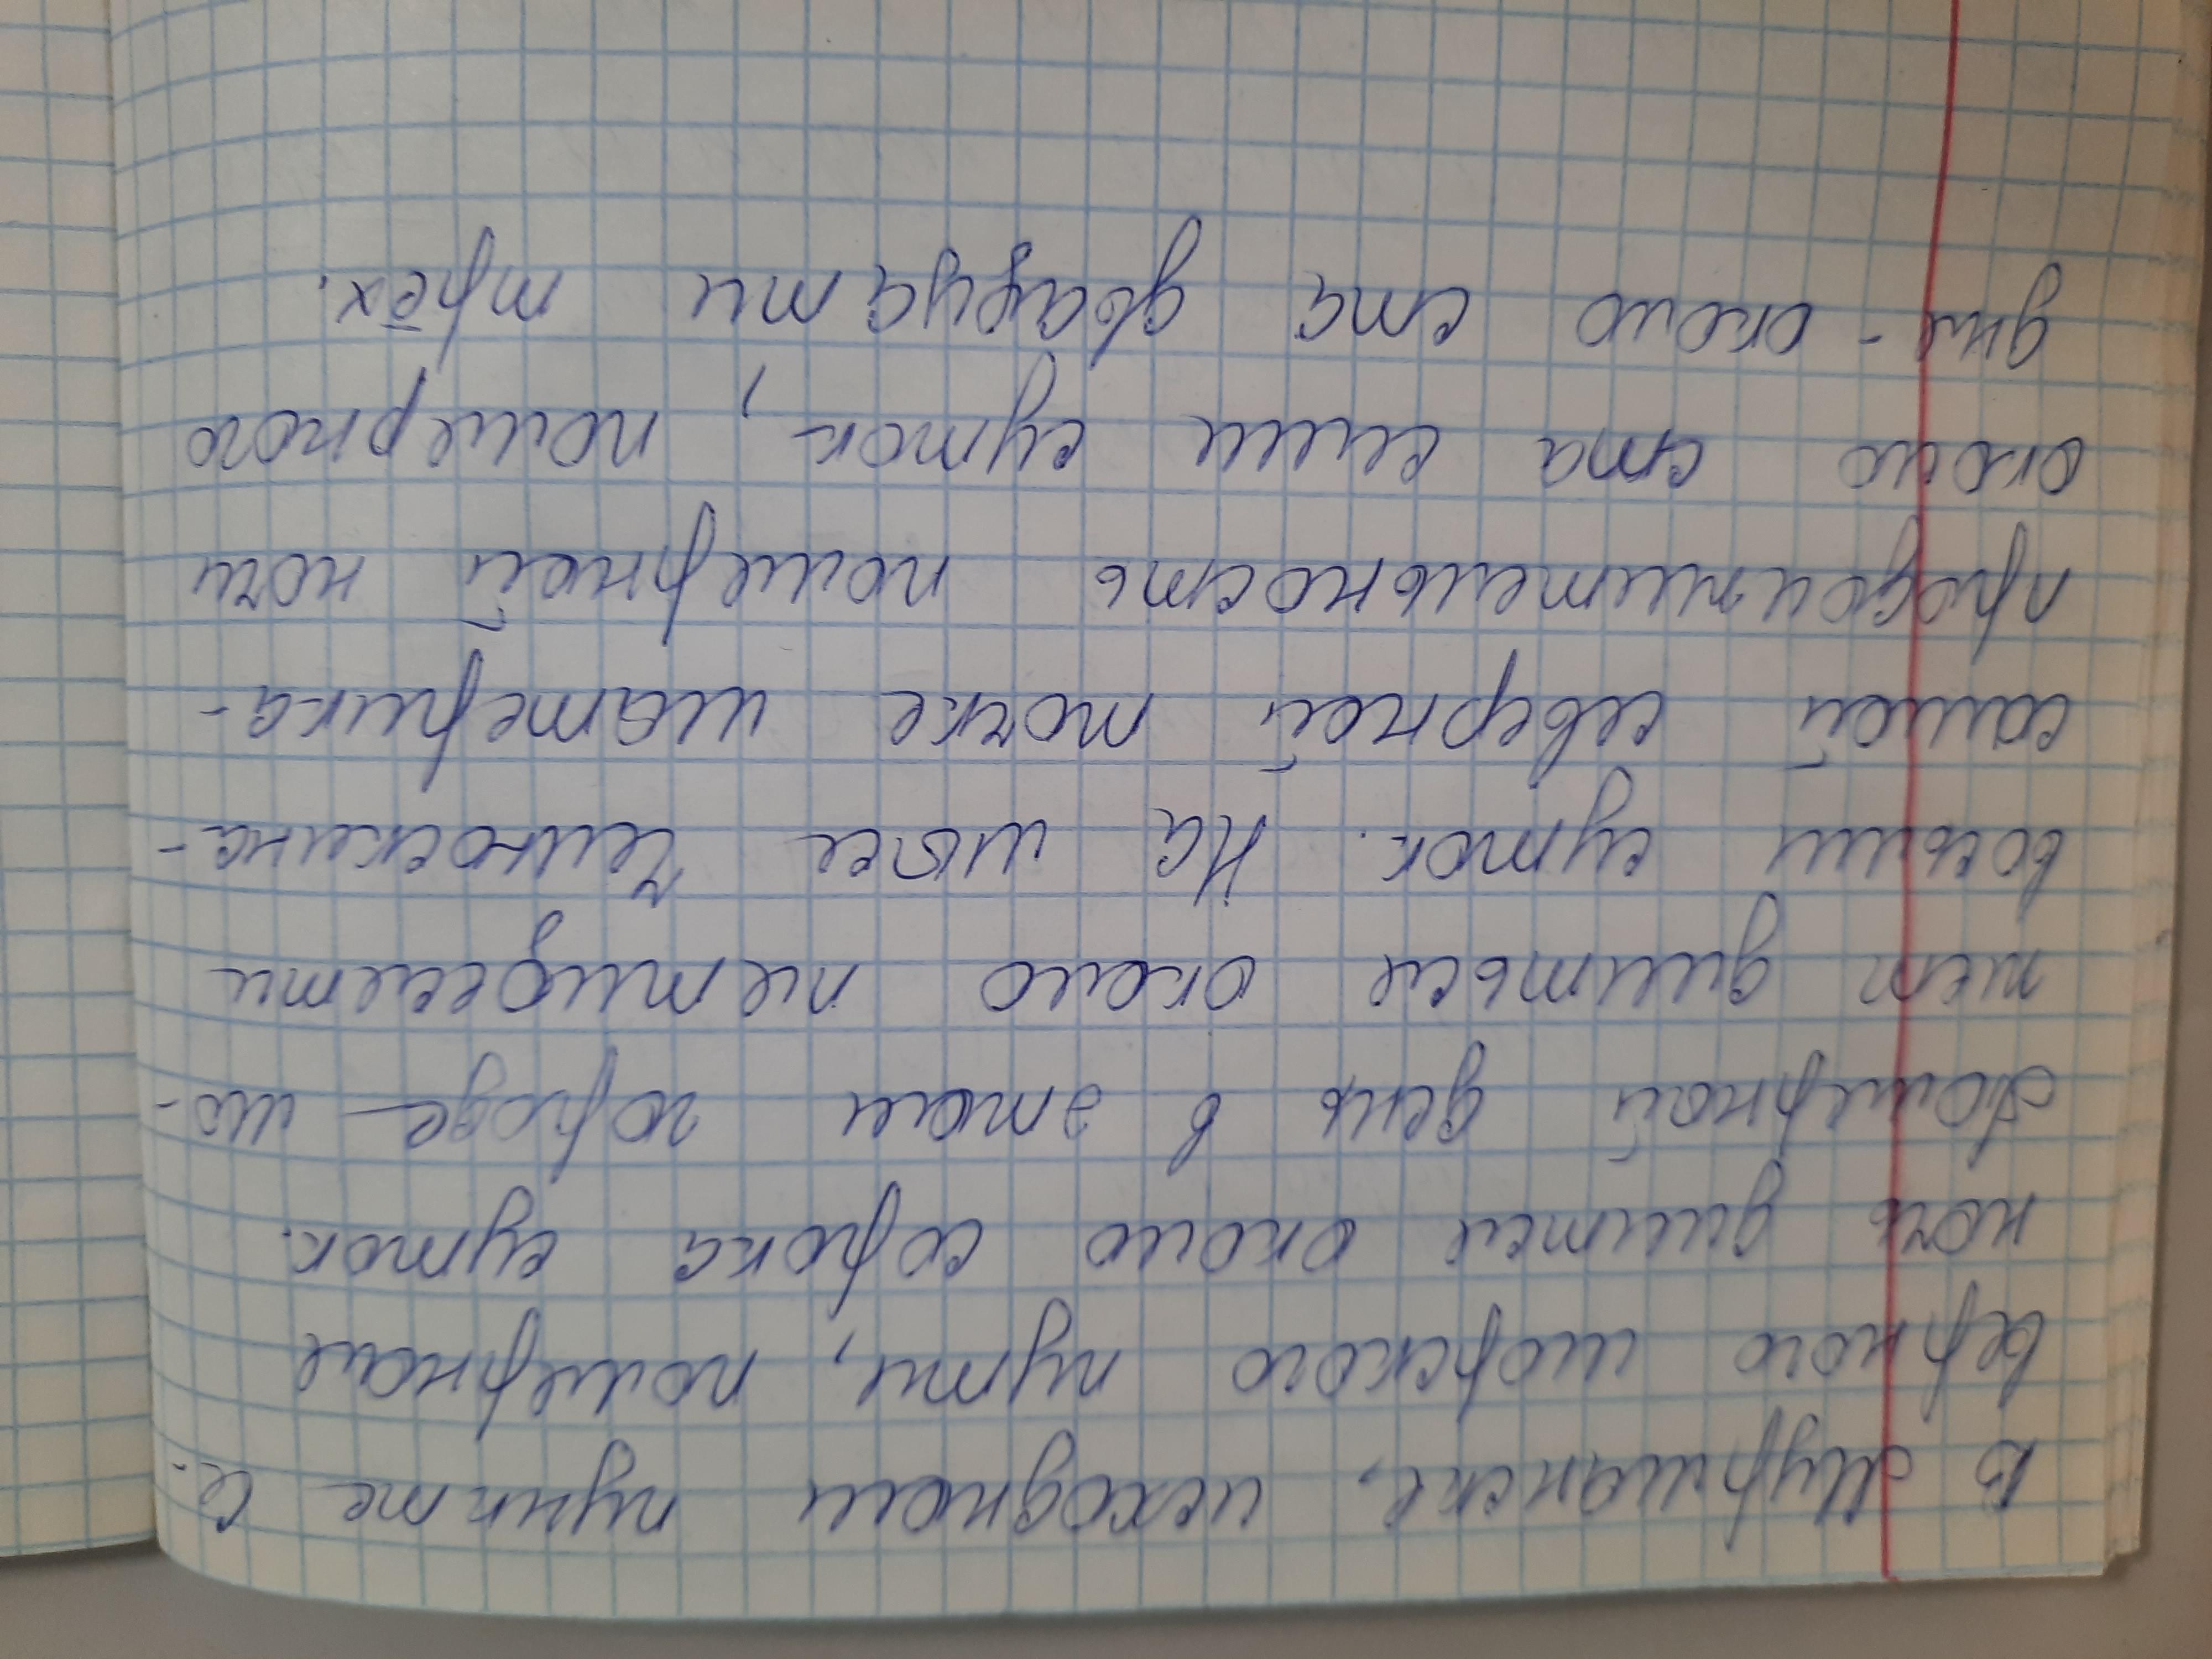 В Мурманске, исходном пункте Се-
верного морского пути, полярная
ночь длится около сорока суток.
Полярной день в этом городе мо-
жет длиться около пятидесяти
восьми суток. На мысе Челюскина-
самой северной точке материка-
продолжительность полярной ночи
около ста семи суток, полярного
дня - около ста двадцати трёх.